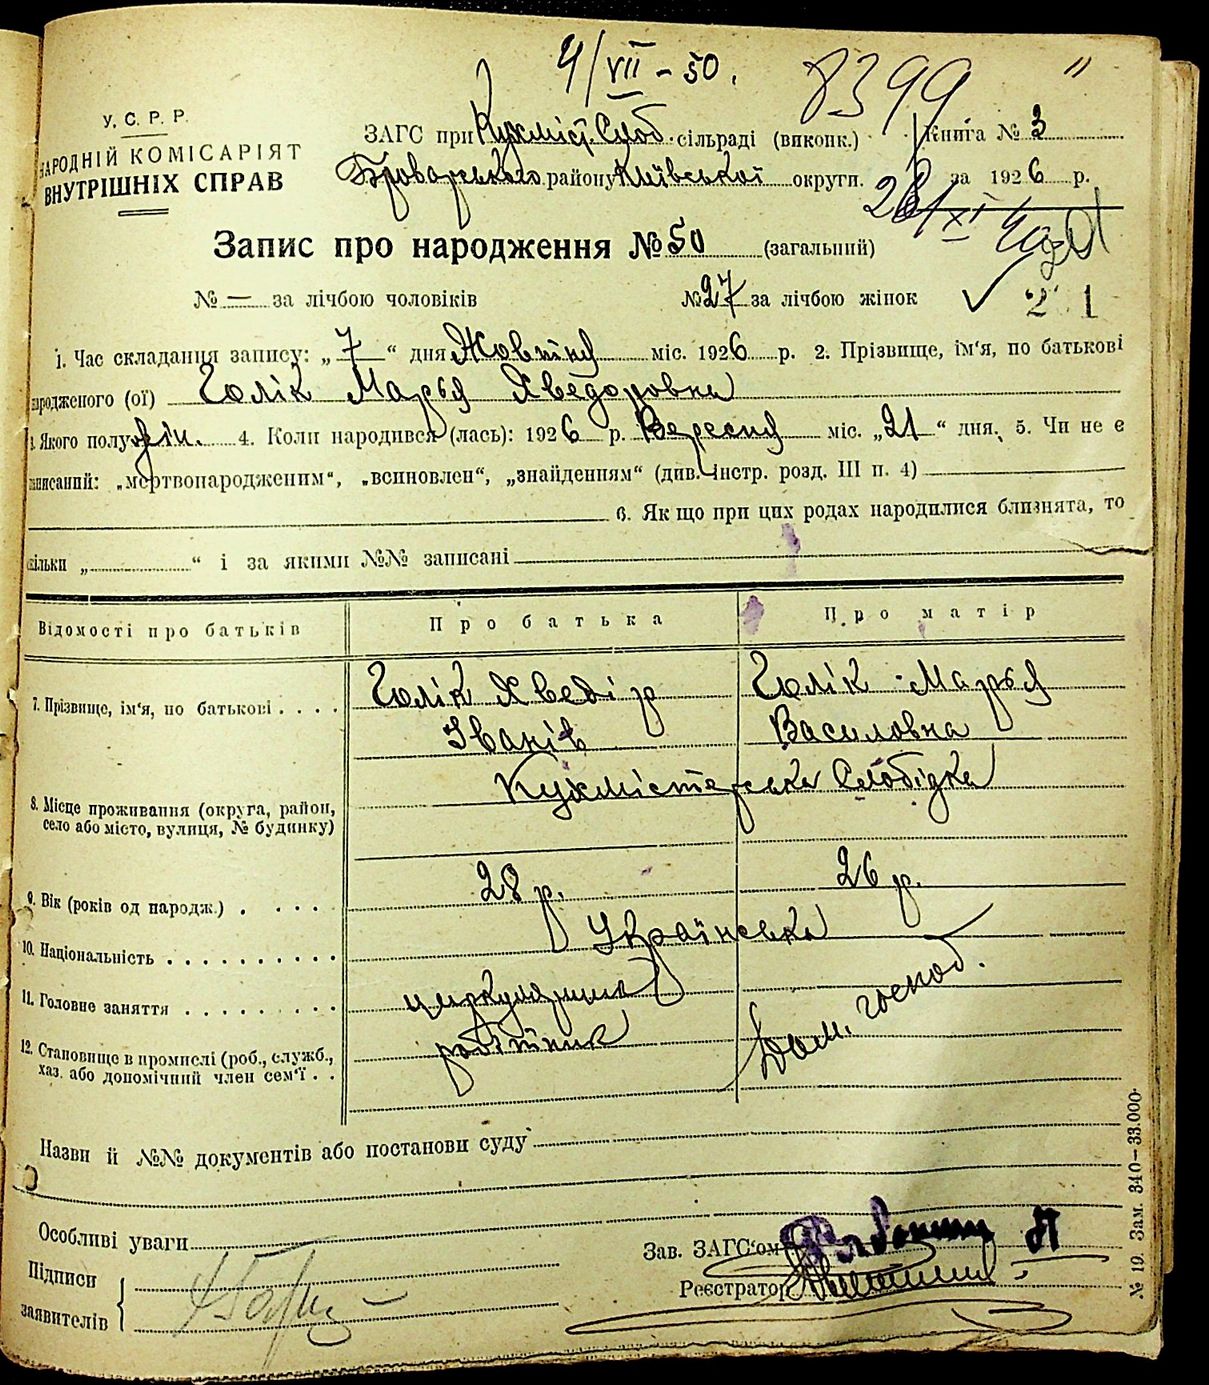 4/VII - 50.
8399
У. С. Р. Р.
НАРОДНІЙ КОМІСАРІЯТ
ВНУТРІШНІХ СПРАВ
ЗАГС при Кухміст. Слоб. сільраді (виконк.) Книга № 3
Броварського району Київської округи. за 1926 р.
Запис про народження № 50 (загальний)
№ — за лічбою чоловіків № 27 за лічбою жінок
2 1
1. Час складання запису: „ 7 “ дня Жовтня міс. 1926 р. 2. Прізвище, ім'я, по батькові
народженого (ої) Голік Марья Хведоровна
3. Якого полу жін. 4. Коли народився (лась): 1926 р. Вересня міс. „21“ дня. 5. Чи не є
записаний: „мертвонародженим“, „всиновлен“, „знайденням“ (див. інстр. розд. III п. 4)
6. Якщо при цих родах народилися близнята, то
скільки „ “ і за якими №№ записані
Відомості про батьків Про батька Про матір
7. Прізвище, ім'я, по батькові . . . . Голік Хведір Голік Марья
Іванів Василовна
8. Місце проживання (округа, район, село або місто, вулиця, № будинку) Кухмістерська Слобідка
9. Вік (років од народж.) . . . . 28 р. 26 р.
10. Національність . . . . . . . . . . Українська
11. Головне заняття . . . . . . . . .
12. Становище в промислі (роб., служб., хаз. або допомічний член сем'ї . . робітник Дом. господ.
Назви й №№ документів або постанови суду
Особливі уваги
Зав. ЗАГС'ом
Підписи
заявителів
Реєстратор
№ 19. Зам. 340–33.000.